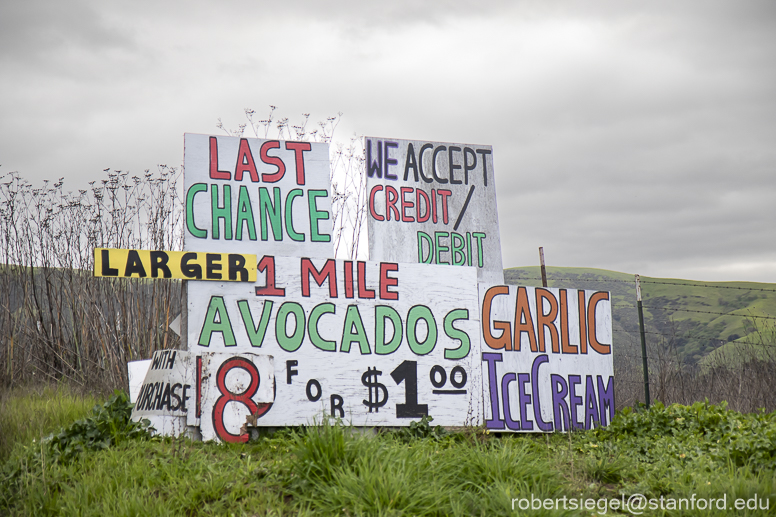 LAST
CHANCE
WE ACCEPT
CREDIT/
DEBIT
LARGER
1 MILE
AVOCADOS
WITH
PURCHASE
8 FOR $1.00
GARLIC
ICECREAM
robertsiegel@stanford.edu